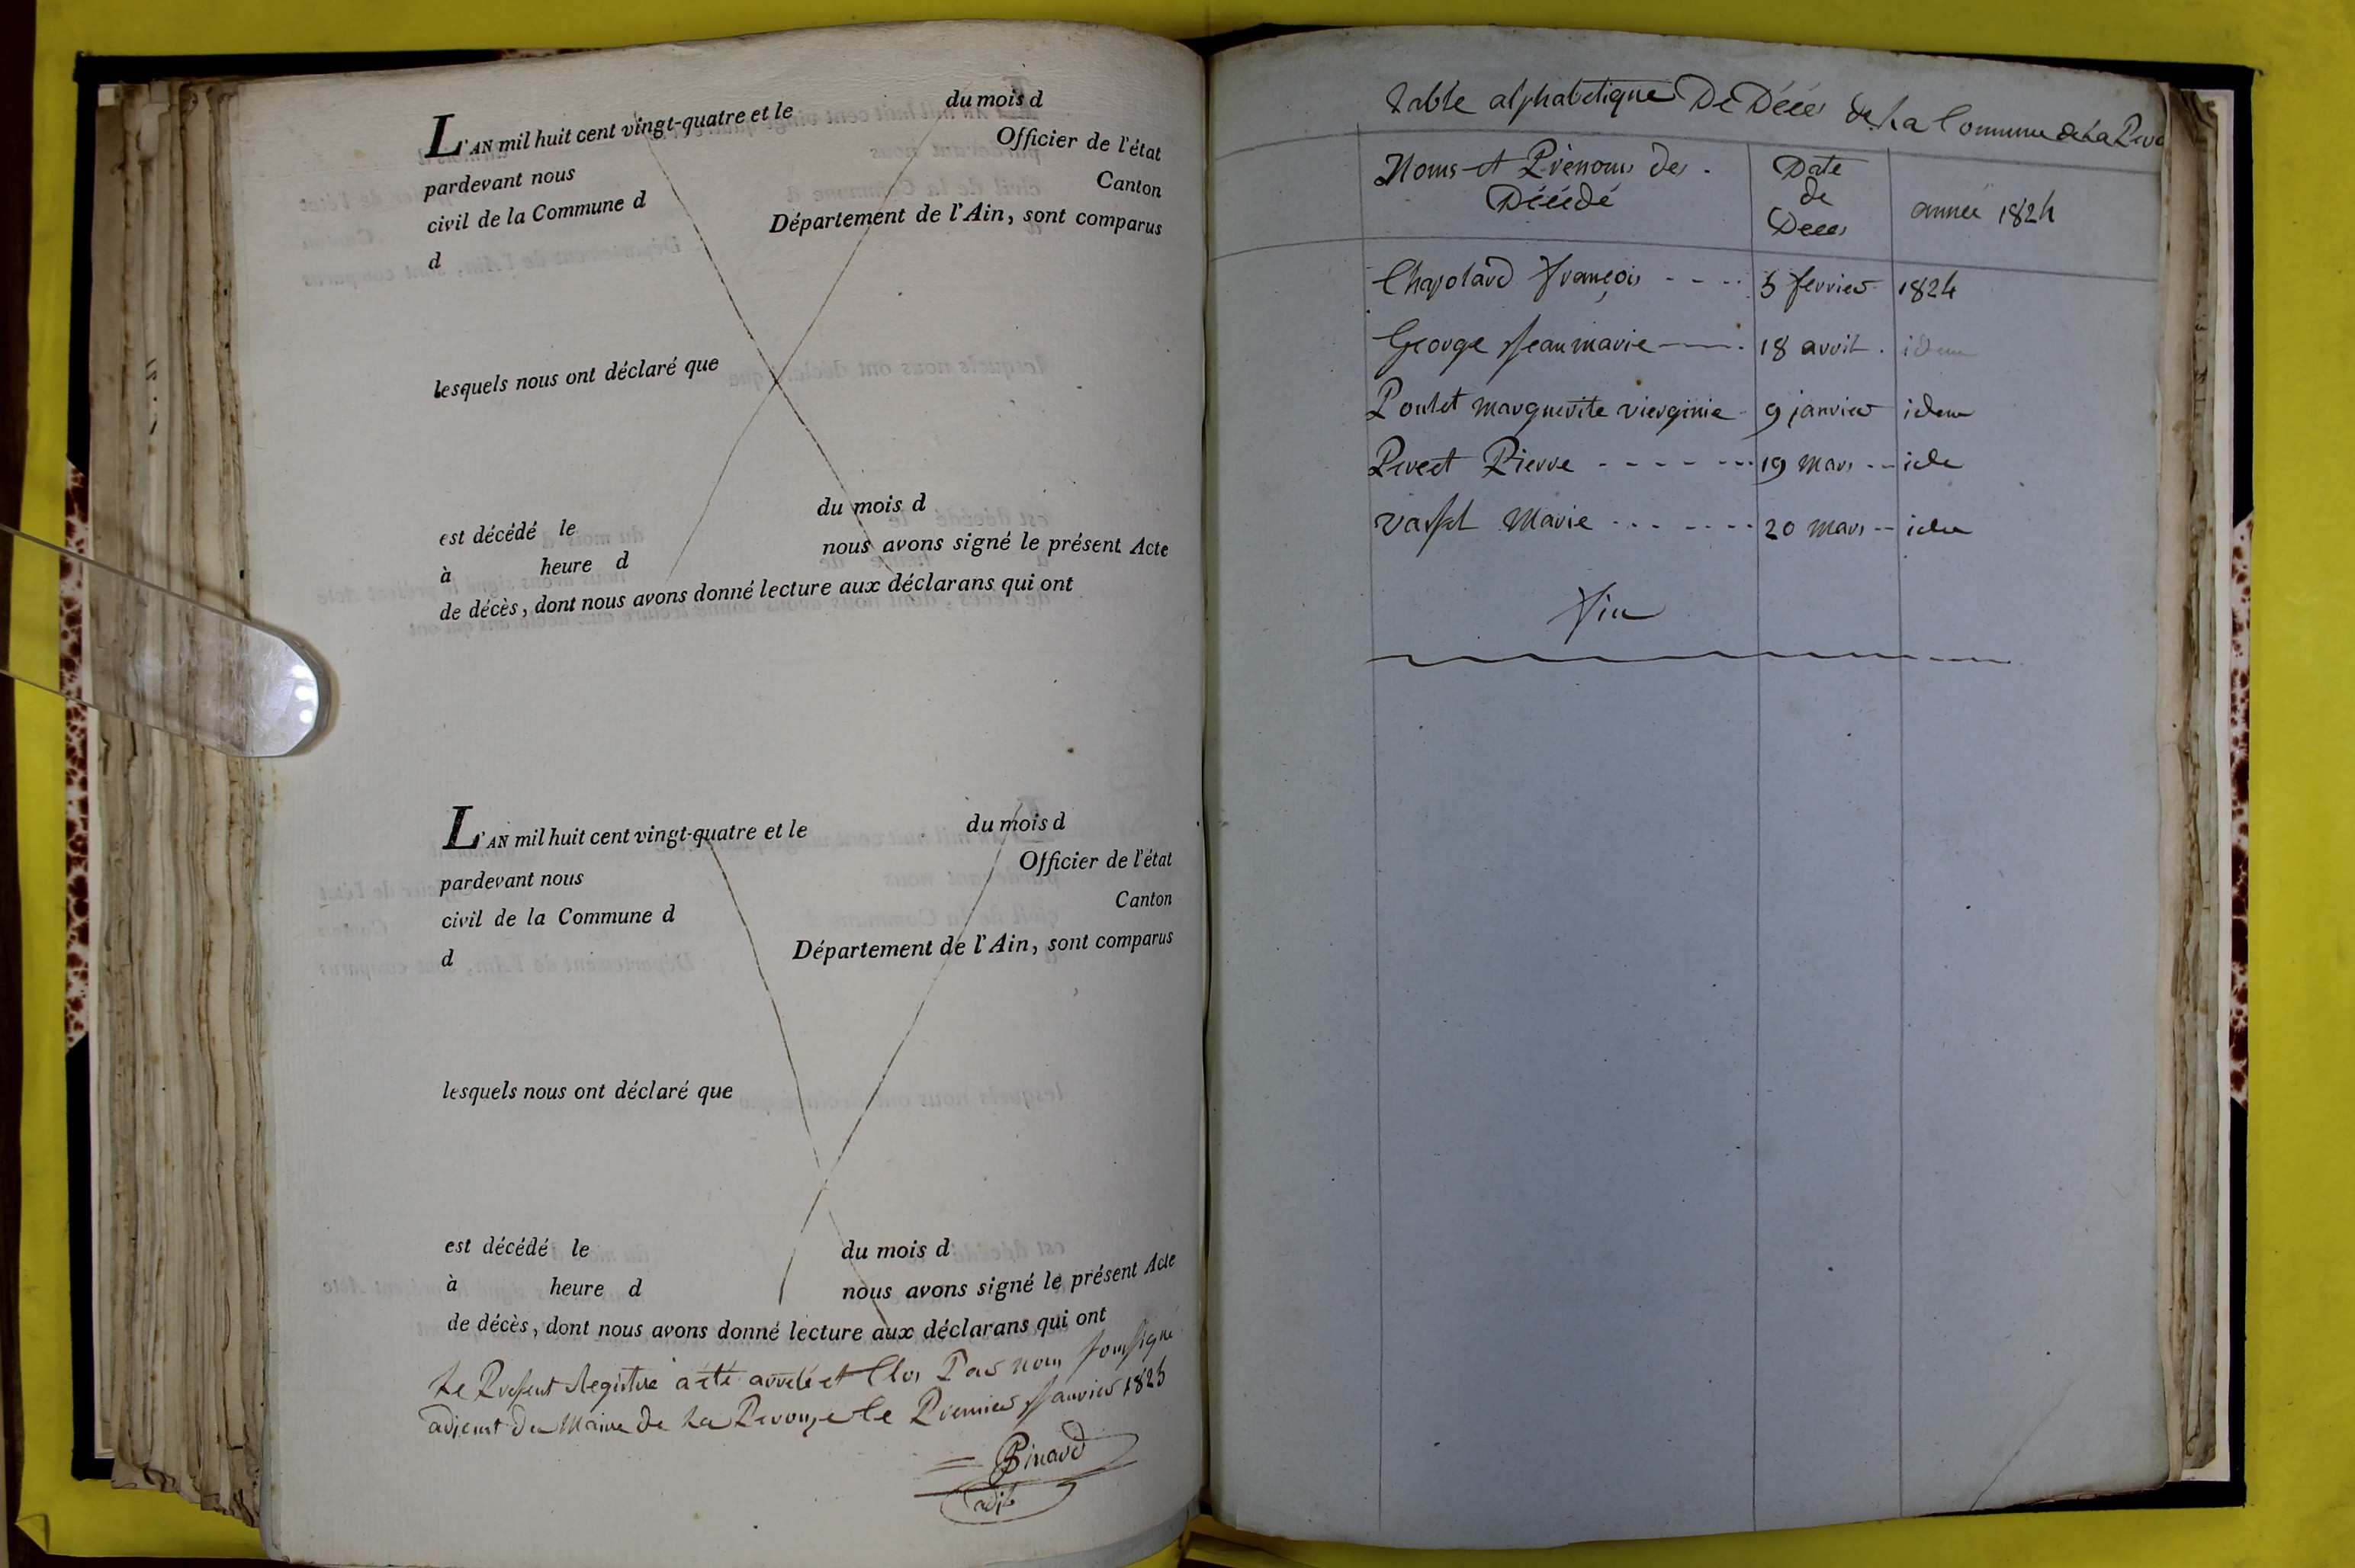 L'AN mil huit cent vingt-quatre et le du mois d
pardevant nous Officier de l'état
civil de la Commune d Canton
d Département de l'Ain, sont comparus
lesquels nous ont déclaré que
est décédé le du mois d
à heure d nous avons signé le présent Acte
de décès, dont nous avons donné lecture aux déclarans qui ont
L'AN mil huit cent vingt-quatre et le du mois d
pardevant nous Officier de l'état
civil de la Commune d Canton
d Département de l'Ain, sont comparus
lesquels nous ont déclaré que
est décédé le du mois d
à heure d nous avons signé le présent Acte
de décès, dont nous avons donné lecture aux déclarans qui ont
Le Present Registre a été arreté et Clos Par nous soussigné
adjoint du Maire de La Perouze le Premier Janvier 1825
Binard
adjt
table alphabetique De Décés de La Commune de La Pero
Noms et Prénoms des Décédé
Date de Decés
année 1824
Chapolard françois - - - - 5 fevrier 1824
George Jean marie 18 avril idem
Poulet marguerite vierginie 9 janvier idem
Perret Pierre - - - - - - - 19 mars -- ide
vassal Marie - - - - - - - 20 mars -- ide
fin